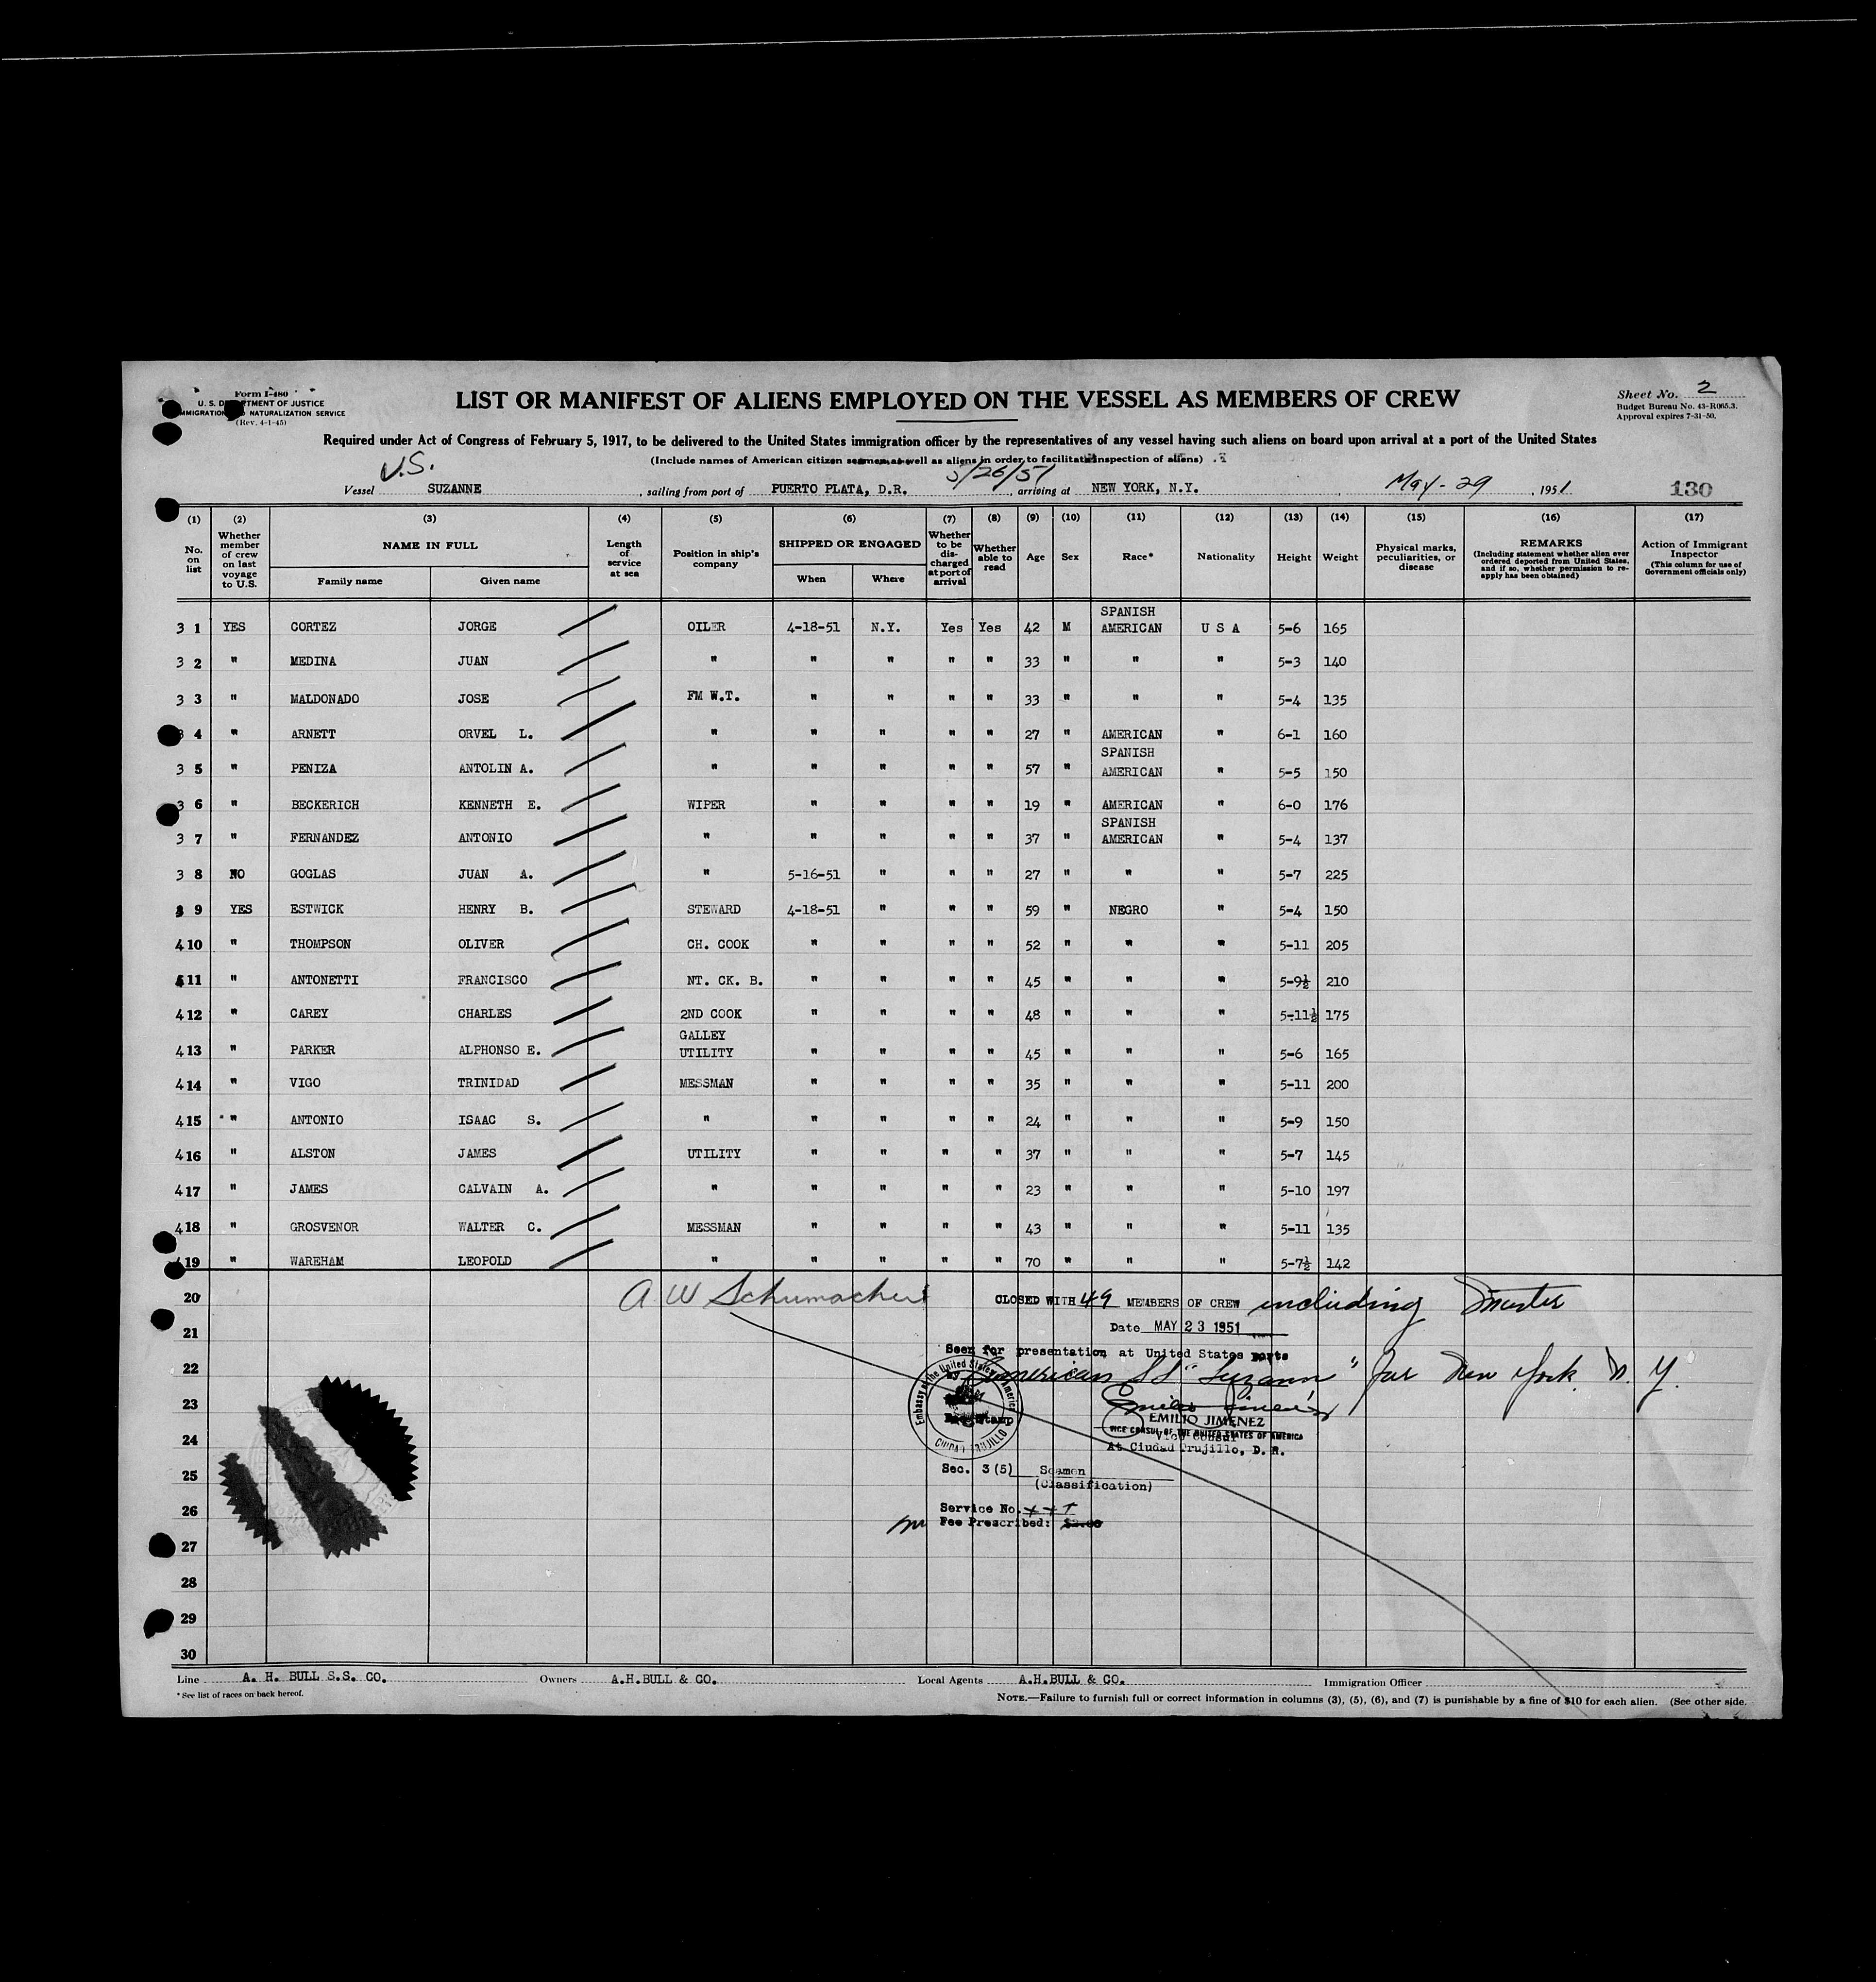 Form I-480
U. S. DEPARTMENT OF JUSTICE
IMMIGRATION AND NATURALIZATION SERVICE
(Rev. 4-1-45)
LIST OR MANIFEST OF ALIENS EMPLOYED ON THE VESSEL AS MEMBERS OF CREW
Sheet No. 2
Budget Bureau No. 43-R065.3.
Approval expires 7-31-50.
Required under Act of Congress of February 5, 1917, to be delivered to the United States immigration officer by the representatives of any vessel having such aliens on board upon arrival at a port of the United States
(Include names of American citizen seamen as well as aliens in order to facilitate inspection of aliens)
U.S. 5/26/51
Vessel SUZANNE, sailing from port of PUERTO PLATA, D.R., arriving at NEW YORK, N.Y., May-29, 1951 130
(1) (2) (3) (4) (5) (6) (7) (8) (9) (10) (11) (12) (13) (14) (15) (16) (17)
No. on list
Whether member of crew on last voyage to U.S.
NAME IN FULL
Family name Given name
Length of service at sea
Position in ship's company
SHIPPED OR ENGAGED
When Where
Whether to be discharged at port of arrival
Whether able to read
Age Sex Race* Nationality Height Weight
Physical marks, peculiarities, or disease
REMARKS
(Including statement whether alien ever ordered deported from United States, and if so, whether permission to reapply has been obtained)
Action of Immigrant Inspector
(This column for use of Government officials only)
3 1 YES CORTEZ JORGE OILER 4-18-51 N.Y. Yes Yes 42 M SPANISH AMERICAN U S A 5-6 165
3 2 " MEDINA JUAN " " " " " 33 " " " 5-3 140
3 3 " MALDONADO JOSE FM W.T. " " " " 33 " " " 5-4 135
3 4 " ARNETT ORVEL L. " " " " " 27 " AMERICAN " 6-1 160
3 5 " PENIZA ANTOLIN A. " " " " " 57 " SPANISH AMERICAN " 5-5 150
3 6 " BECKERICH KENNETH E. WIPER " " " " 19 " AMERICAN " 6-0 176
3 7 " FERNANDEZ ANTONIO " " " " " 37 " SPANISH AMERICAN " 5-4 137
3 8 NO GOGLAS JUAN A. " 5-16-51 " " " 27 " " " 5-7 225
3 9 YES ESTWICK HENRY B. STEWARD 4-18-51 " " " 59 " NEGRO " 5-4 150
410 " THOMPSON OLIVER CH. COOK " " " " 52 " " " 5-11 205
411 " ANTONETTI FRANCISCO NT. CK. B. " " " " 45 " " " 5-9½ 210
412 " CAREY CHARLES 2ND COOK " " " " 48 " " " 5-11½ 175
413 " PARKER ALPHONSO E. GALLEY UTILITY " " " " 45 " " " 5-6 165
414 " VIGO TRINIDAD MESSMAN " " " " 35 " " " 5-11 200
415 " ANTONIO ISAAC S. " " " " " 24 " " " 5-9 150
416 " ALSTON JAMES UTILITY " " " " 37 " " " 5-7 145
417 " JAMES CALVAIN A. " " " " " 23 " " " 5-10 197
418 " GROSVENOR WALTER C. MESSMAN " " " " 43 " " " 5-11 135
419 " WAREHAM LEOPOLD " " " " " 70 " " " 5-7½ 142
20 A W Schumacher CLOSED WITH 49 MEMBERS OF CREW including Master
Date MAY 23 1951
21
Seen for presentation at United States ports
22 American SS "Suzann" for New York N. Y.
Embassy of the United States of America
CIUDAD TRUJILLO
Fee Stamp
23 Emilio Jimenez
EMILIO JIMENEZ
VICE CONSUL OF THE UNITED STATES OF AMERICA
Vice Consul
24 At Ciudad Trujillo, D. R.
25 Sec. 3(5) Seamen
(Classification)
26 Service No.
Fee Prescribed: $2.00
27
28
29
30
Line A. H. BULL S.S. CO. Owners A.H.BULL & CO. Local Agents A.H.BULL & CO. Immigration Officer
* See list of races on back hereof.
NOTE.—Failure to furnish full or correct information in columns (3), (5), (6), and (7) is punishable by a fine of $10 for each alien. (See other side.